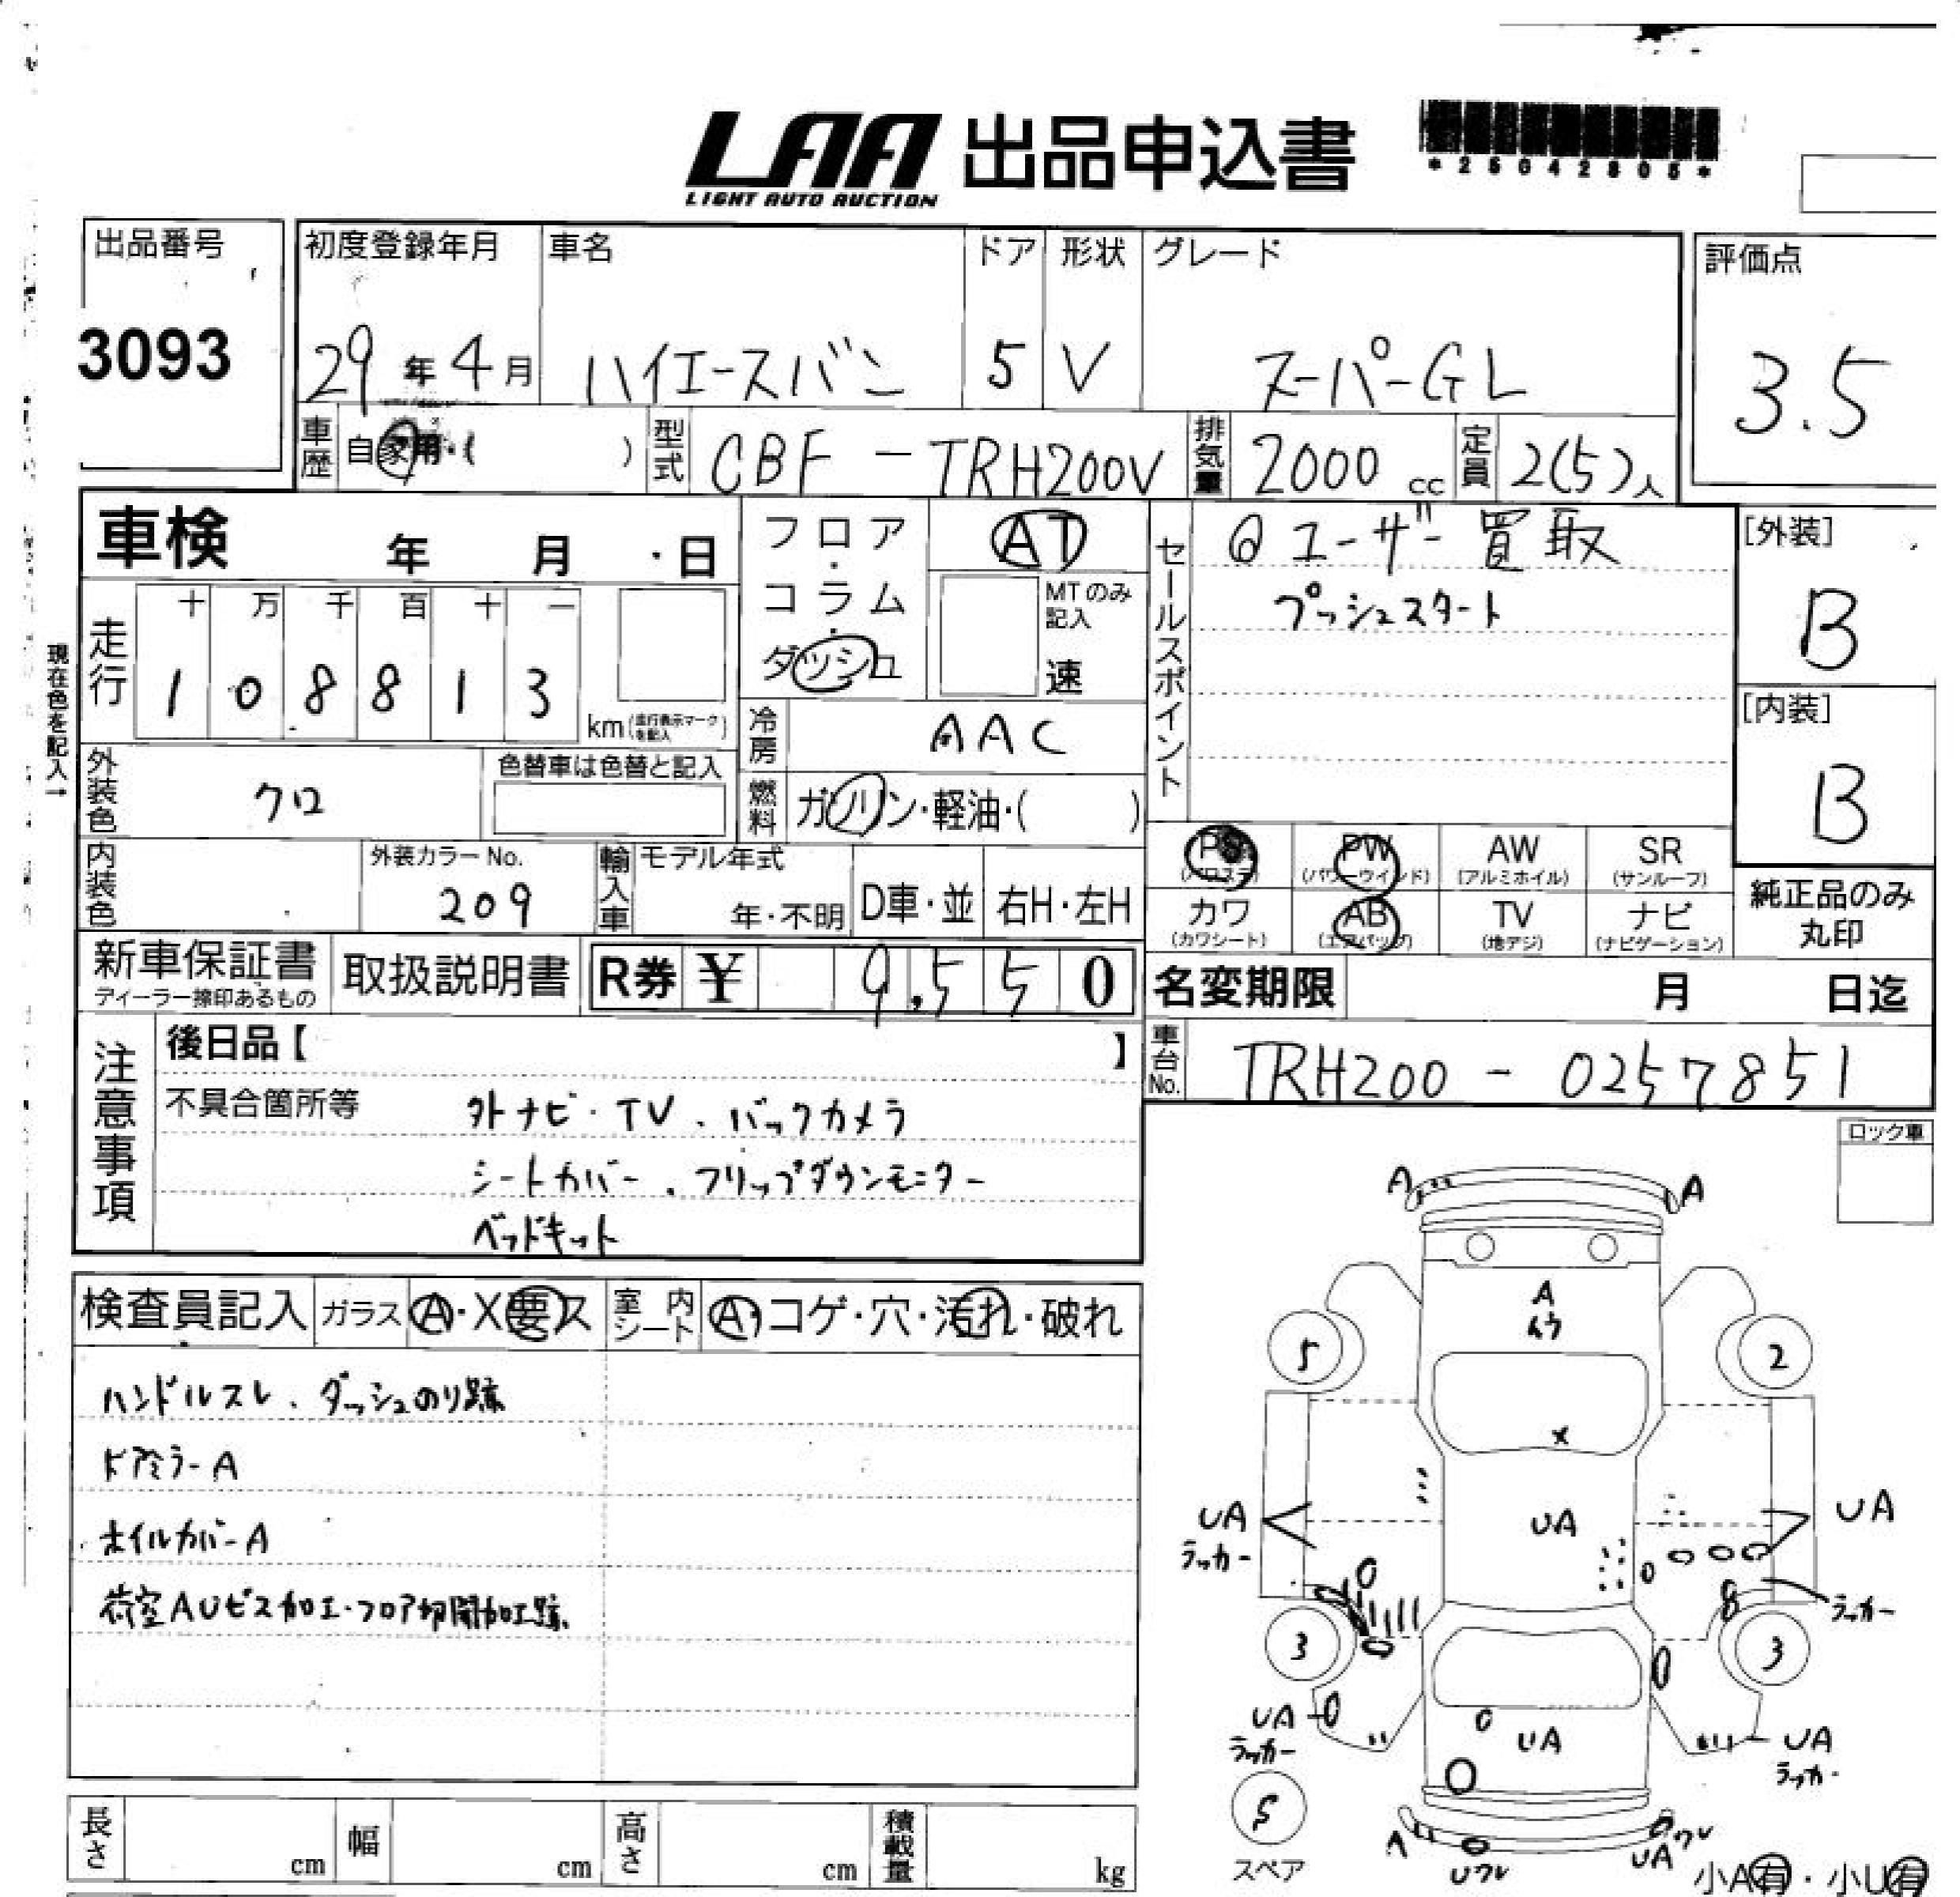 LAA 出品申込書
LIGHT AUTO AUCTION
*25042805*
出品番号
3093
初度登録年月
29年4月
車名
ハイエースバン
ドア
5
形状
V
グレード
スーパーGL
評価点
3.5
車歴
自家用・( )
型式
CBF-TRH200V
排気量
2000 cc
定員
2(5)人
車検 年 月 日
フロア・コラム・ダッシュ
AT
MTのみ記入
速
セールスポイント
◎ユーザー買取
プッシュスタート
[外装]
B
[内装]
B
現在色を記入→
走行
十 万 千 百 十 一
1 0 8 8 1 3
km(走行表示マークを記入)
冷房
AAC
外装色
クロ
色替車は色替と記入
燃料
ガソリン・軽油・( )
内装色
外装カラーNo.
209
輸入車
モデル年式
年・不明
D車・並
右H・左H
PS(パワステ)
PW(パワーウインド)
AW(アルミホイル)
SR(サンルーフ)
カワ(カワシート)
AB(エアバッグ)
TV(地デジ)
ナビ(ナビゲーション)
純正品のみ丸印
新車保証書
ディーラー捺印あるもの
取扱説明書
R券 ¥ 9,550
名変期限 月 日迄
注意事項
後日品【 】
車台No.
TRH200-0257851
不具合箇所等
外ナビ・TV、バックカメラ
シートカバー、フリップダウンモニター
ベッドキット
ロック車
検査員記入
ガラス A・X要ス
室内シート A・コゲ・穴・汚れ・破れ
ハンドルスレ、ダッシュのり跡
ドアミラーA
ホイルカバーA
荷室AUビス加工・フロア切開加工跡
A
A
A
5
2
X
UA
ラッカー
UA
UA
ラッカー
3
3
UA
ラッカー
UA
UA
ラッカー
S
スペア
A
Uワレ
UA
ワレ
小A有・小U有
長さ cm
幅 cm
高さ cm
積載量 kg